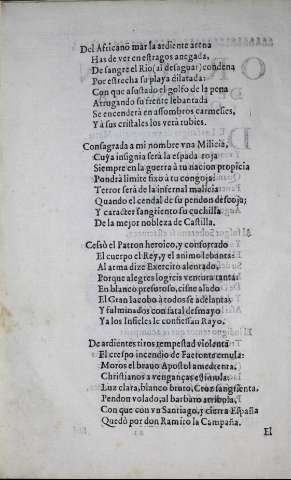 Del Africano mar la ardiente arena
Has de ver en estragos anegada,
De sangre el Rio (al desaguar) condena
Por estrecha su playa dilatada:
Con que asustado el golfo de la pena
Arrugando su frente lebantada
Se encenderà en assombros carmesies,
Y à sus cristales los verà rubies.
Consagrada a mi nombre vna Milicia,
Cuya insignia serà la espada roja
Siempre en la guerra à tu nacion propicia
Pondrà limite fixo a tu congoja:
Terror serà de la infernal malicia
Quando el cendal de su pendon descoja;
Y caracter sangriento su cuchilla
De la mejor nobleza de Castilla.
Cessò el Patron heroico, y confortado
El cuerpo el Rey, y el animo lebanta:
Al arma dize Exercito alentado,
Porque alegres logreis ventura tanta:
En blanco presuroso, cisne alado
El Gran Iacobo à todos se adelanta;
Y fulminados con fatal desmayo
Ya los Infieles le confiessan Rayo.
De ardientes tiros tempestad violenta
El crespo incendio de Faetonte emula:
Moros el brauo Apostol amedrenta,
Christianos a venganças estimula:
Luz clara, blanco bruto, Cruz sangrienta,
Pendon volado, al barbaro atribula,
Con que con vn Santiago, y cierra España
Quedò por don Ramiro la Campaña.
El